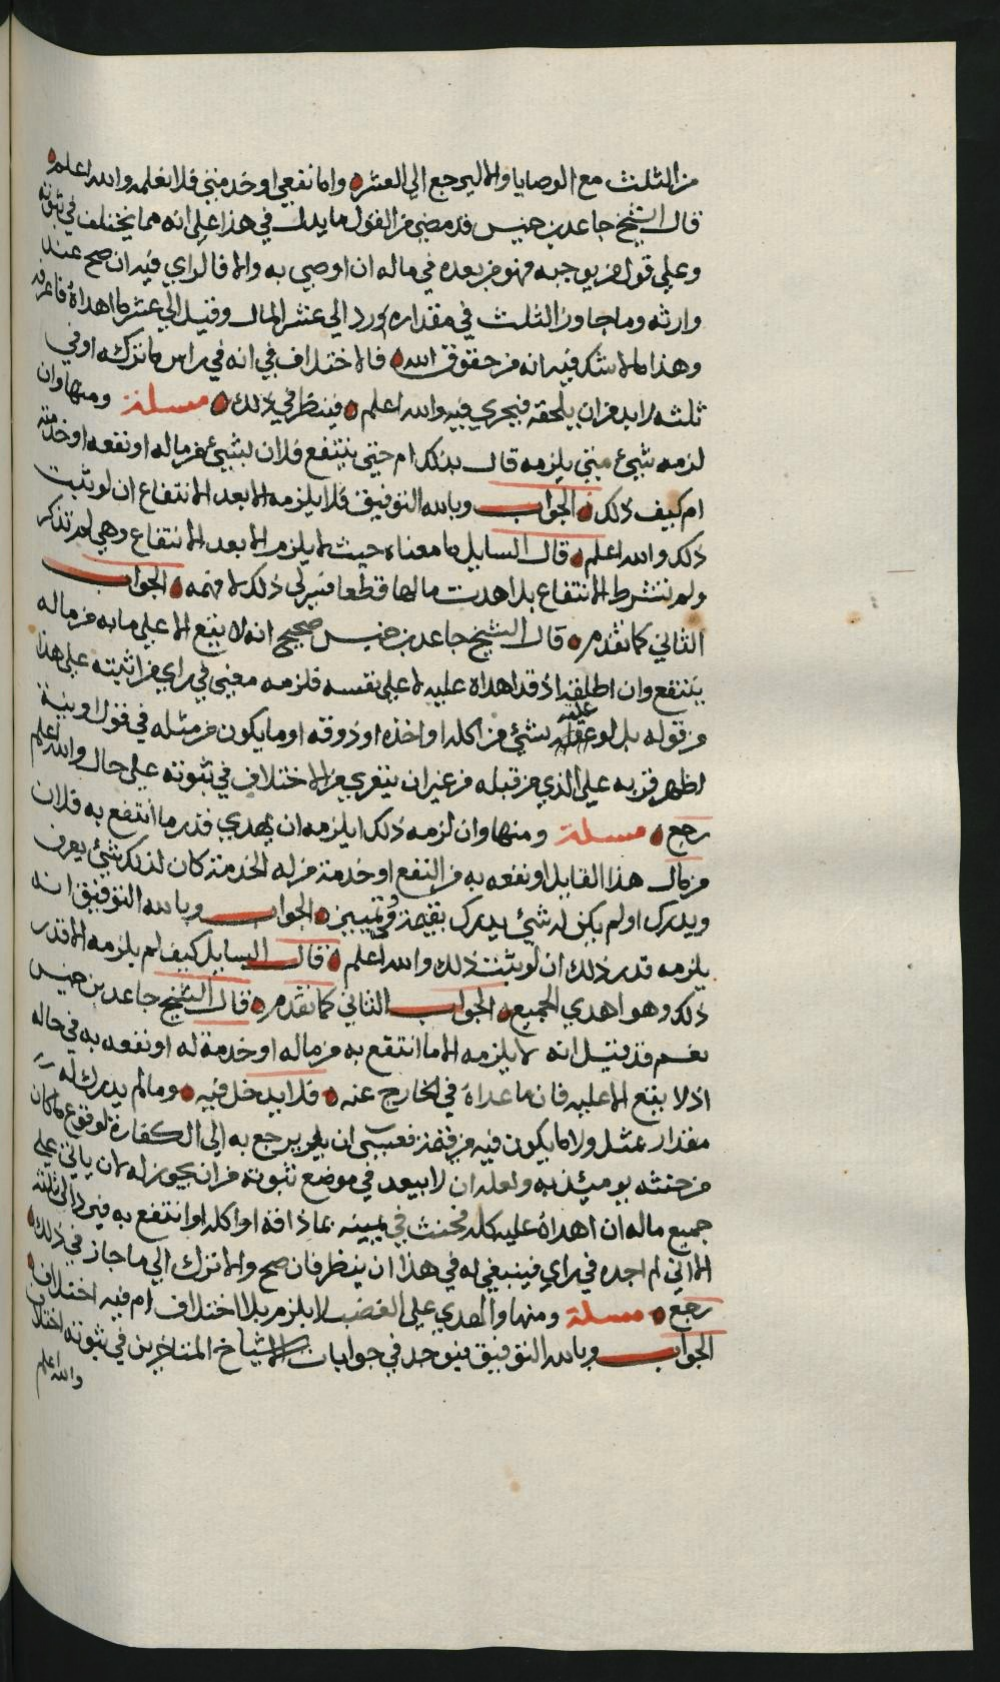 من الثلث مع الوصايا والا ليرجع الي العشر واما نفعي او خدمتي فلا نعلمه والله اعلم
قال الشيخ جاعد بن خميس قد مضي من القول ما يدل في هذا علي انه مما يختلف في ثبوته
وعلي قول من يوجبه فهو من بعده في ماله ان اوصي به والا فالراي فيه ان صح عند
وارثه وما جاوز الثلث في مقداره رد الي عشر المال وقيل الي عشر ما اهداه فاعرفه
وهذا مالا شك فيه انه من حقوق الله فالاختلاف في انه في راس ما تركه او في
ثلثه لابد من ان يلحقه فيجري فيه والله اعلم فينظر في ذلك مسئلة ومنها وان
لزمه شيء متي يلزمه قال بذلك ام حتي ينتفع فلان بشيء من ماله او نفعه او خدمته
ام كيف ذلك الجواب وبالله التوفيق فلا يلزمه الا بعد الانتفاع ان لو ثبت
ذلك والله اعلم قال السايل ما معناه حيث لا يلزم الا بعد الانتفاع وهي لم تذكر
ولم تشترط الانتفاع بل اهدت مالها قطعا فسر لي ذلك لافهمه الجواب
الثاني كما تقدم قال الشيخ جاعد بن خميس صحيح انه لا يقع الا علي ما به من ماله
ينتفع وان اطلقه اذ قد اهداه عليه لا علي نفسه فلزمه معني في راي من اثبته علي هذا
من قوله بل لو علقه بشيء من اكله او اخذه او ذوقه او ما يكون من مثله في قول او بنية
لظهر قربه علي الذي من قبله من غير ان يتعري من الاختلاف في ثبوته علي حال والله اعلم
رجع مسئلة ومنها وان لزمه ذلك ايلزمه ان يهدي قدر ما انتفع به فلان
من مال هذا القايل او نفعه به من النفع او خدمته من له الخدمة كان لذلك شيء يعرف
ويدرك او لم يكن له شيء يدرك بقيمة وتمييز الجواب وبالله التوفيق انه
يلزمه قدر ذلك ان لو ثبت ذلك والله اعلم قال السايل كيف لم يلزمه الا قدر
ذلك وهو اهدي الجميع الجواب الثاني كما تقدم قال الشيخ جاعد بن خميس
نعم قد قيل انه لا يلزمه الا ما انتفع به من ماله او خدمة له او نفعه به في حاله
اذ لا يقع الا عليه فان ما عداه في الخارج عنه فلا يدخل فيه وما لم يدرك له
مقدار بمثل ولا ما يكون فيه من قيمة فعسي ان يرجع به الي الكفارة لوقوع ما كان
من حنثه يومئذ به ولعله ان لا يبعد في موضع ثبوته من ان يجوز له لان ياتي علي
جميع ماله ان اهداه عليه كله فحنث في يمينه بما ذاقه او اكله او انتفع به فيرد الي ثلثه
الا اني لم اجده في راي فينبغي له في هذا ان ينظر فان صح والا ترك الي ما جاز في ذلك
رجع مسئلة ومنها والهدي علي الغضب لا يلزم بلا اختلاف ام فيه اختلاف
الجواب وبالله التوفيق فيوجد في جوابات الاشياخ المتاخرين في ثبوته اختلاف
والله اعلم